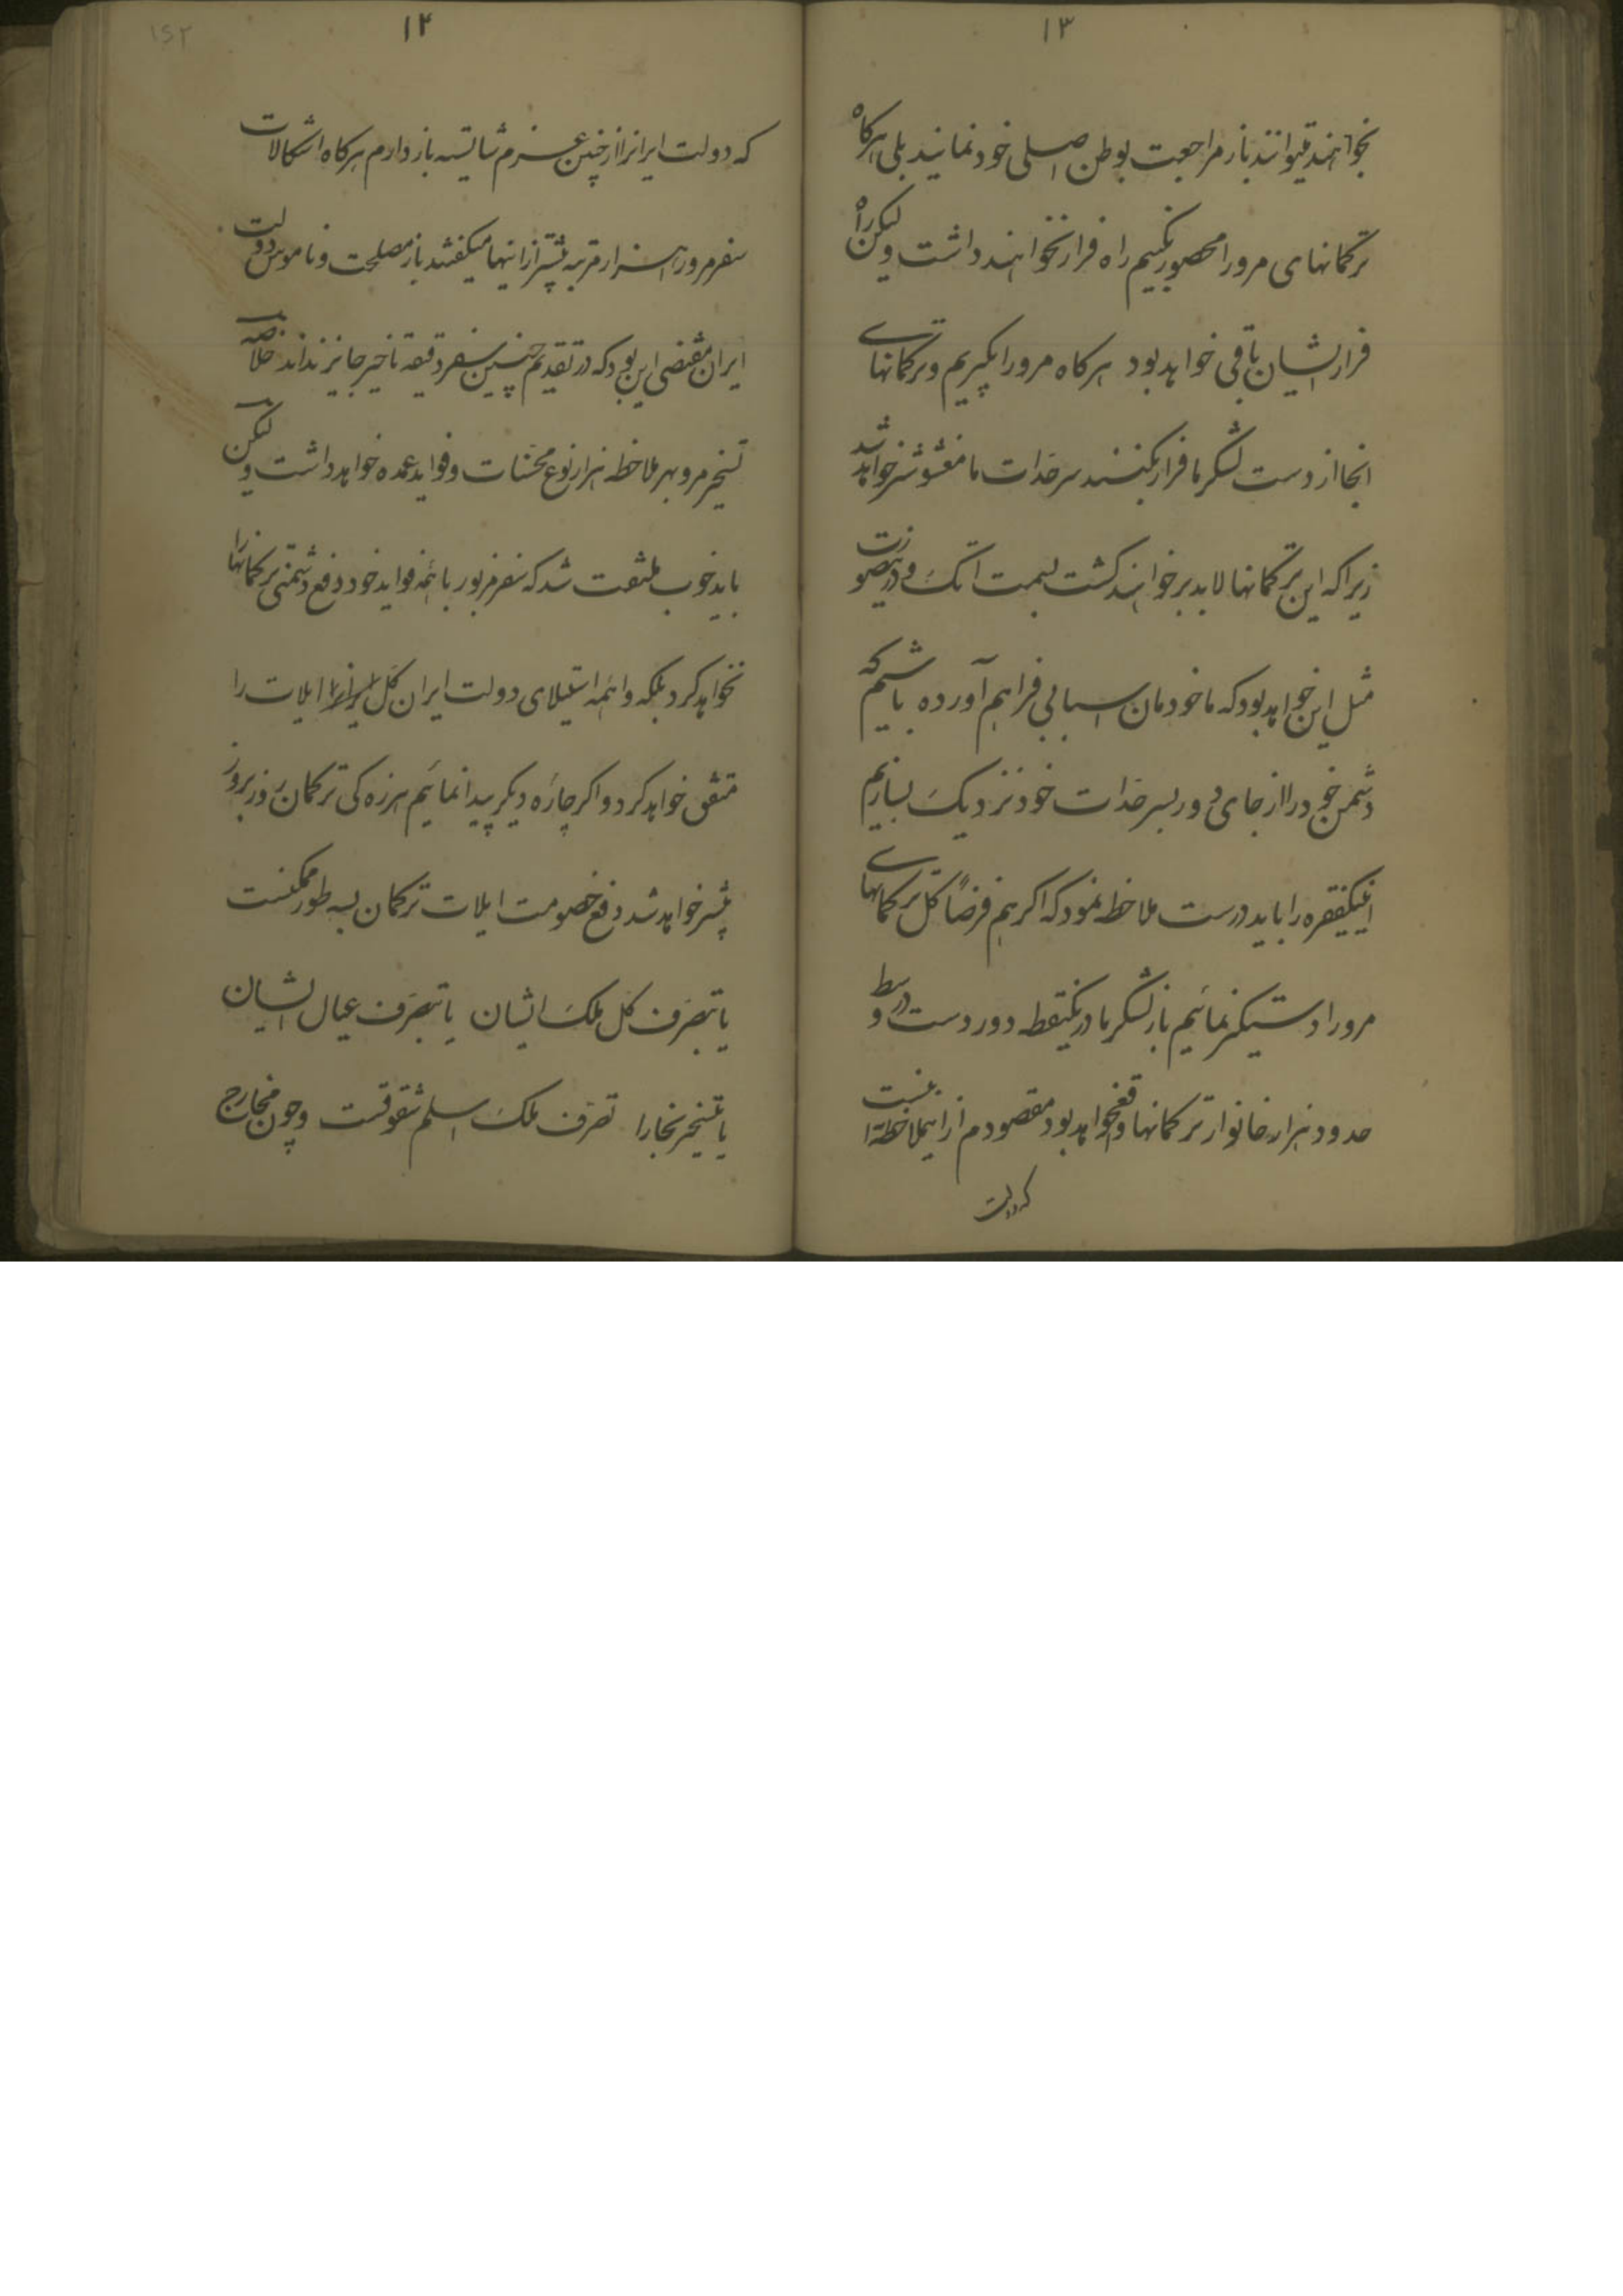 ۱۳
بخواهند میتوانند باز مراجعت بوطن اصلی خود نمایند بلی هرکاه
ترکمانهای مرو را محصور بکنیم راه فرار نخواهند داشت ولیکن راه
فرار ایشان باقی خواهد بود هرکاه مرو را بکیریم و ترکمانهای
انجا از دست لشکر ما فرار بکنند سرحدات ما مغشوشتر خواهد شد
زیرا که این ترکمانها لابد بر خواهند کشت بسمت اتک و در اینصورت
مثل این خواهد بود که ما خودمان اسبابی فراهم آورده باشیم که
دشمن خود را از جای دور بسرحدات خود نزدیک بسازیم
اینکفقره را باید درست ملاحظه نمود که اکر هم فرضاً کل ترکمانهای
مرو را دستکیر نمائیم باز لشکر ما در یکنقطه دور دست و در وسط
حدود هزار خانوار ترکمانها واقع خواهد بود مقصودم از این ملاحظه انیست
که دولت
۱۴
۱۵۲
که دولت ایران را از چنین عزم شایسته باز دارم هرکاه اشکالات
سفر مرو هزار مرتبه بیشتر از اینها میکفتند باز مصلحت و ناموس دولت
ایران مقتضی این بود که در تقدیم چنین سفر دقیقه تاخیر جایز نداند خلاصه
تسخیر مرو بهر ملاحظه هزار نوع محسنات و فواید عمده خواهد داشت ولیکن
باید خوب ملتفت شد که سفر مزبور با همه فواید خود دفع دشمنی ترکمانها را
نخواهد کرد بلکه واهمه استیلای دولت ایران کل ایلات را
متفق خواهد کرد و اکر چاره دیکر پیدا نمائیم هرزه کی ترکمان روز بروز
بیشتر خواهد شد دفع خصومت ایلات ترکمان بسه طور ممکنست
یا بتصرف کل ملک ایشان یا بتصرف عیال ایشان
یا بتسخیر بخارا تصرف ملک اسلم شقوقست و چون مخارج